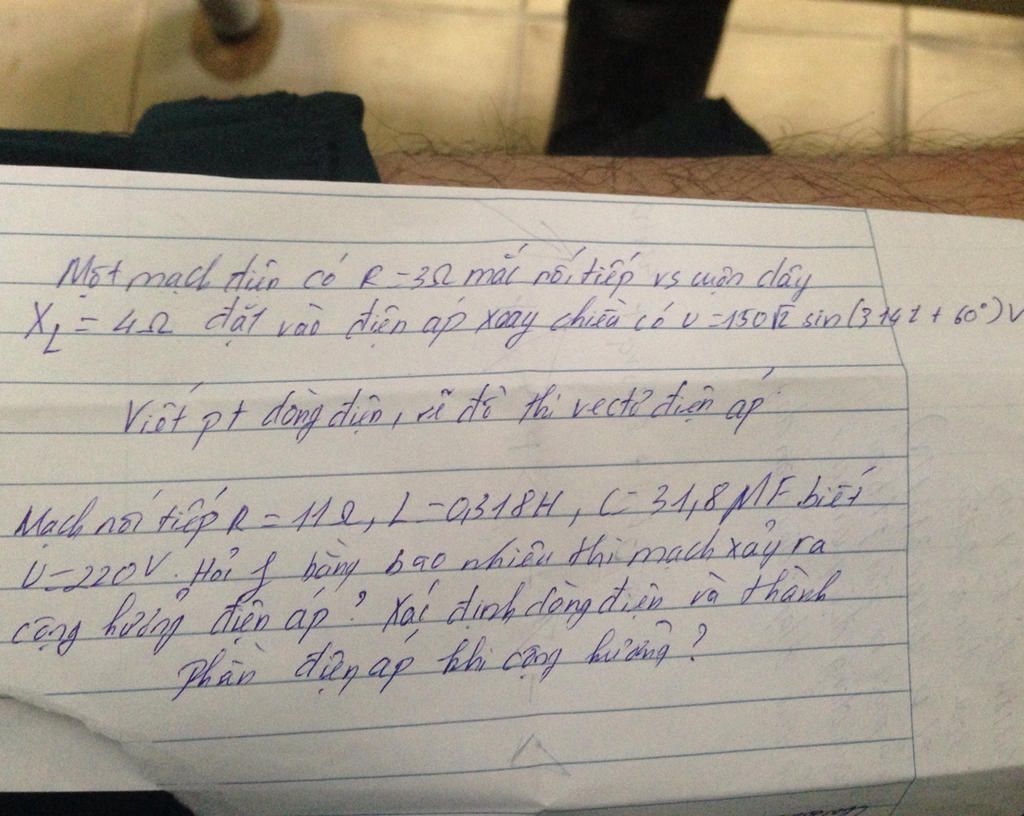 Một mạch điện có R = 3Ω mắc nối tiếp vs cuộn dây
X_L = 4Ω đặt vào điện áp xoay chiều có U = 150√2 sin(314t + 60°)V
Viết pt dòng điện, vẽ đồ thị vectơ điện áp
Mạch nối tiếp R = 11Ω, L = 0,318H, C = 31,8 MF biết
U = 220V. Hỏi f bằng bao nhiêu thì mạch xảy ra
cộng hưởng điện áp? Xác định dòng điện và thành
phần điện áp khi cộng hưởng?